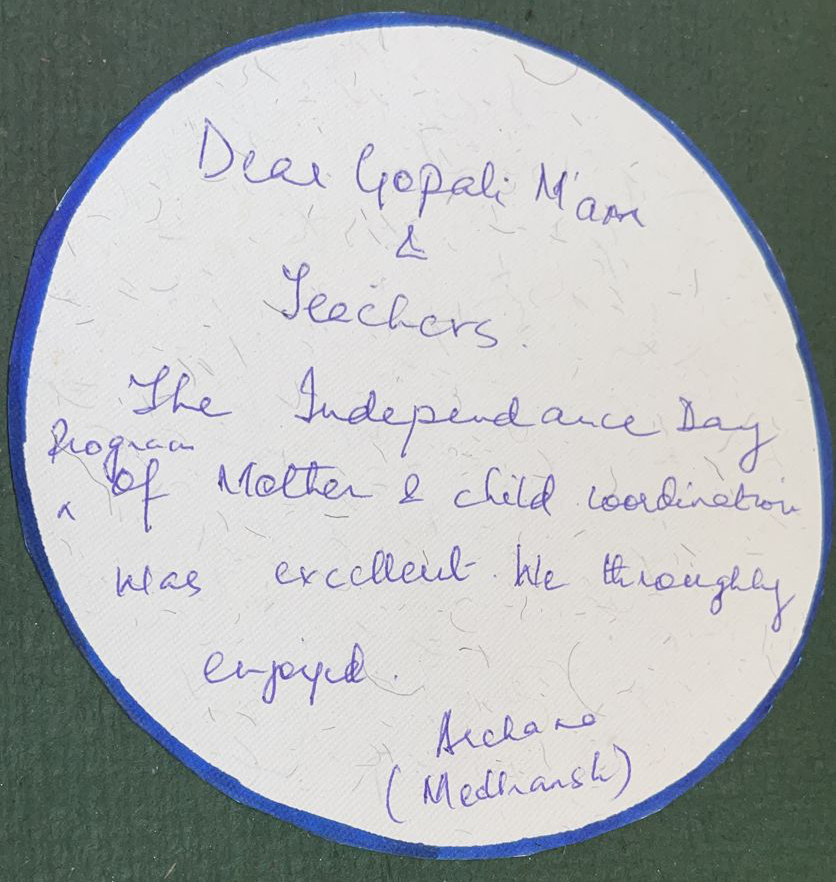 Dear Gopali M'am
&
Teachers.
The Independance Day
Program
of Mother & child coordination
was excellent. We throughly
enjoyed.
Archana
(Medhansh)